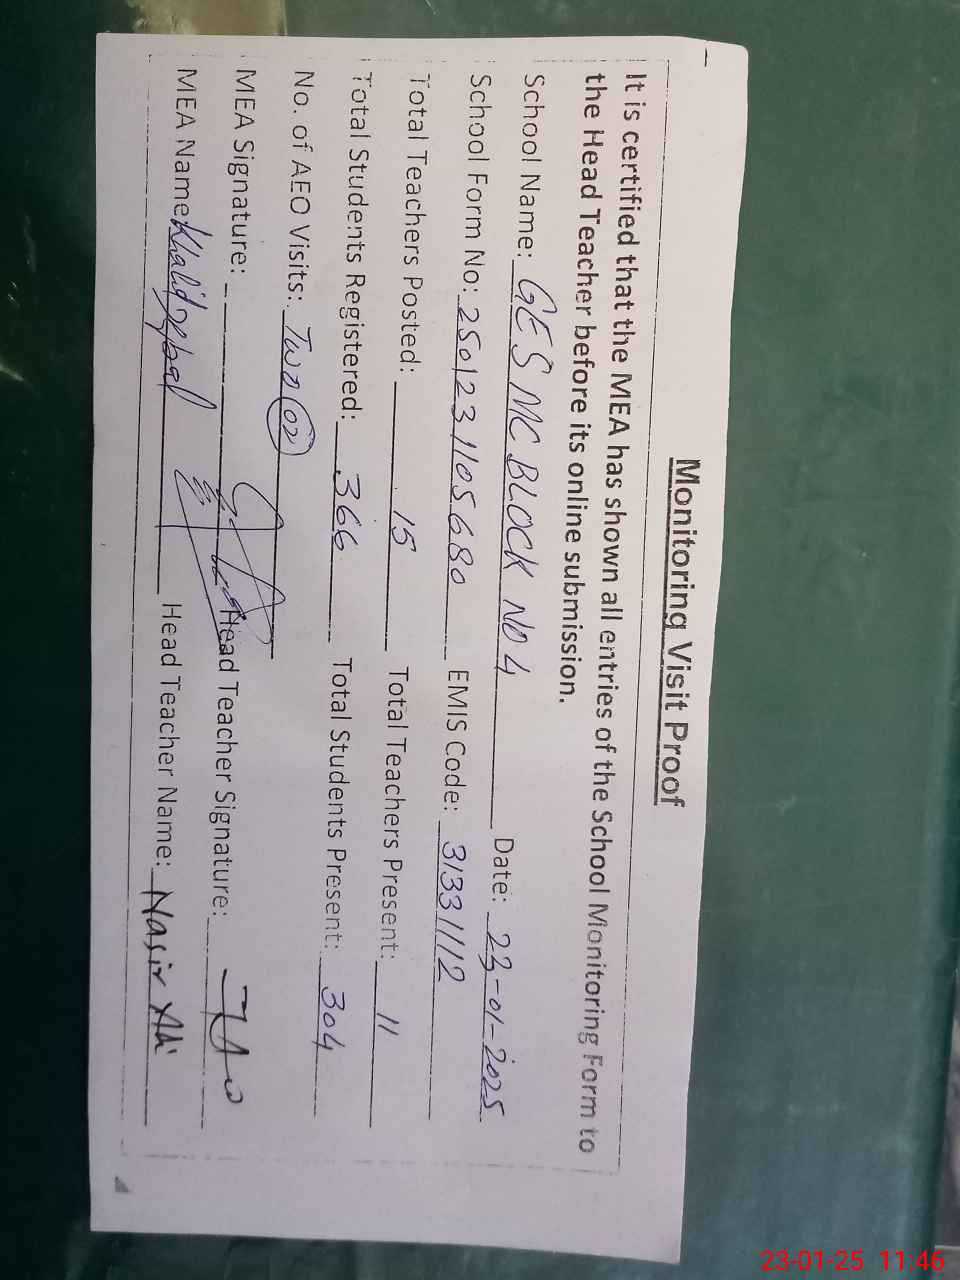 Monitoring Visit Proof
It is certified that the MEA has shown all entries of the School Monitoring Form to
the Head Teacher before its online submission.
School Name: GES MC BLOCK NO 4 Date: 23-01-2025
School Form No: 2501231105680 EMIS Code: 31331112
Total Teachers Posted: 15 Total Teachers Present: 11
Total Students Registered: 366 Total Students Present: 304
No. of AEO Visits: Two 02
MEA Signature: Head Teacher Signature:
MEA Name: Khalid Iqbal Head Teacher Name: Nasir Ali
23-01-25 11:46